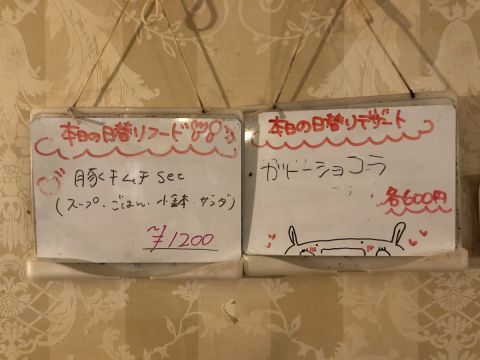 本日の日替りフード
豚キムチsec
(スープ・ごはん・小鉢・サラダ)
¥1200
本日の日替りデザート
ガトーショコラ
各600円